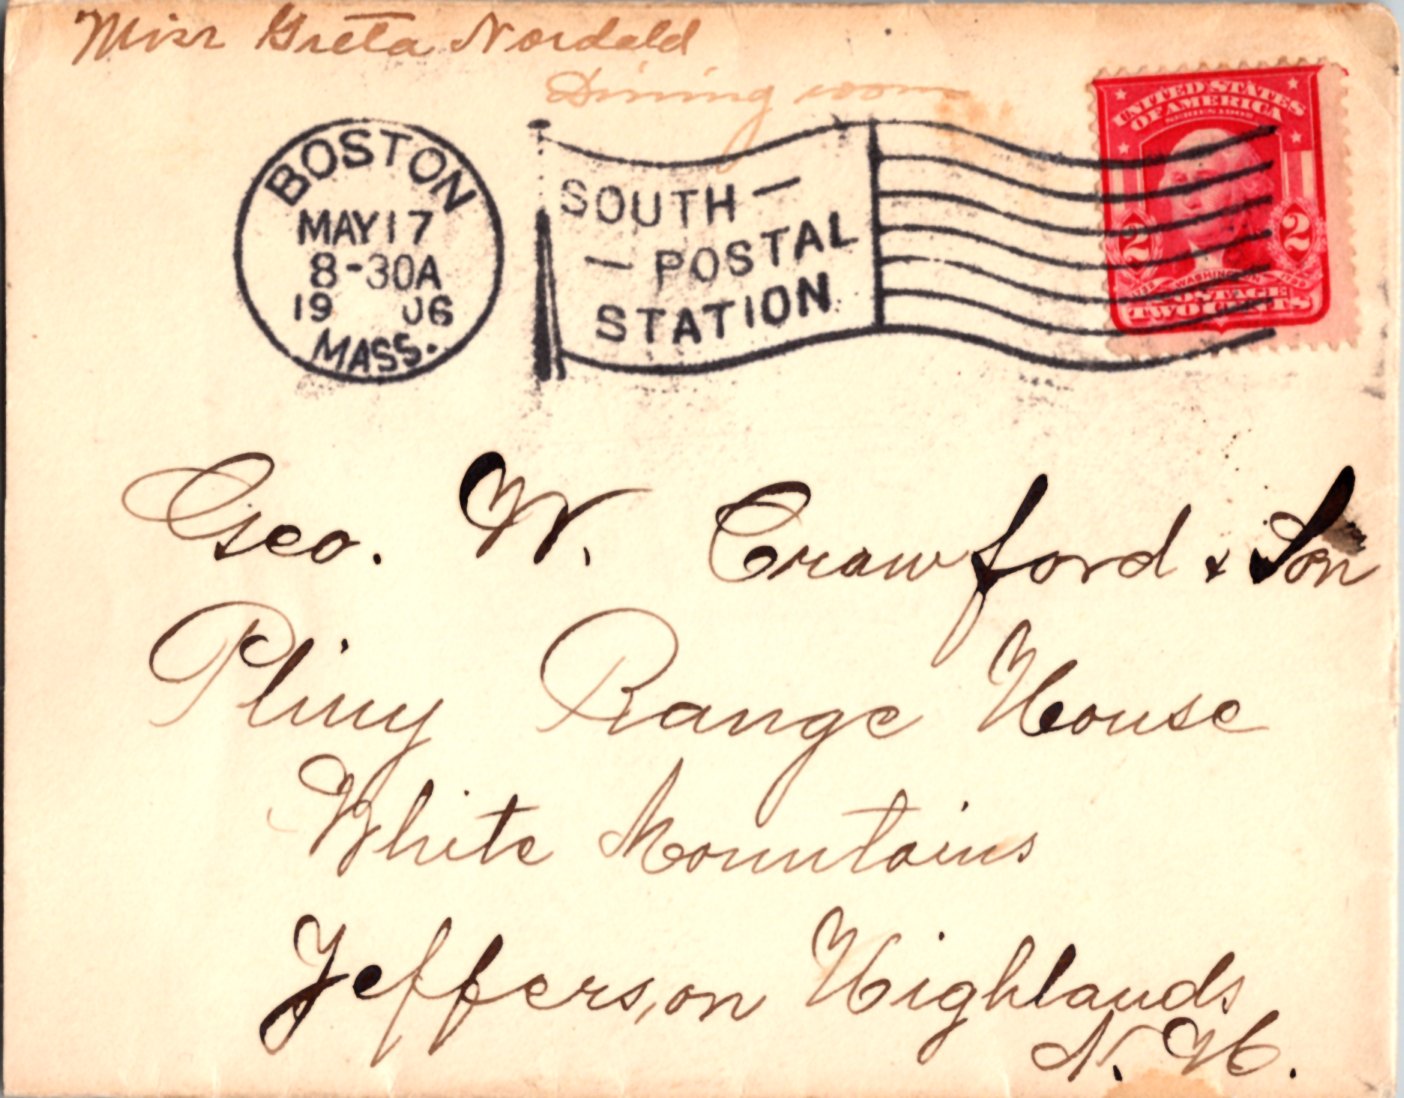 Miss Greta Nordald
Dining room
BOSTON
MAY 17
8-30A
19 06
MASS.
SOUTH —
— POSTAL
STATION
UNITED STATES
OF AMERICA
SERIES 1902
2 2
WASHINGTON
POSTAGE
TWO CENTS
Geo. W. Crawford & Son
Pliny Range House
White Mountains
Jefferson Highlands
N. H.